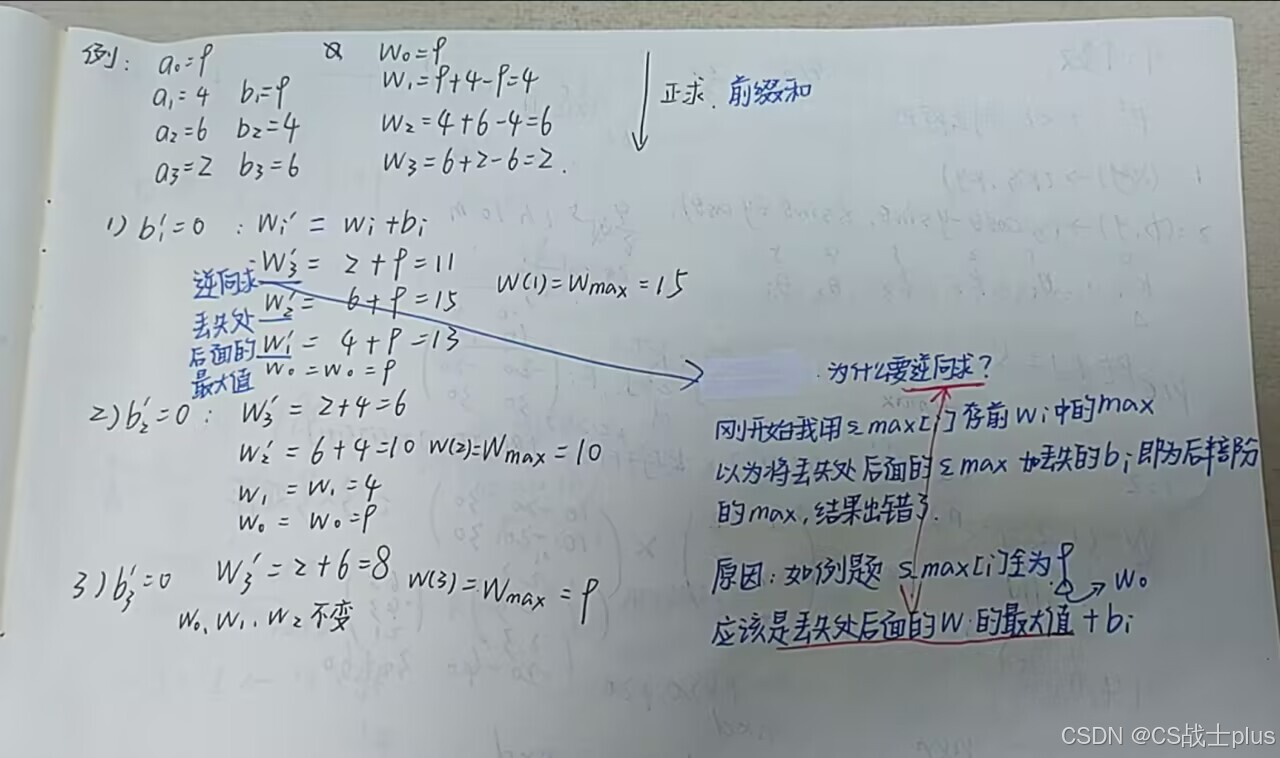 例: a₀=9 w₀=9
a₁=4 b₁=9 w₁=9+4-9=4
a₂=6 b₂=4 w₂=4+6-4=6
a₃=2 b₃=6 w₃=6+2-6=2.
正求. 前缀和
1) b₁'=0 : wᵢ' = wᵢ+bᵢ
w₃' = 2+9=11
w₂' = 6+9=15 w(1)=wmax=15
w₁' = 4+9=13
w₀=w₀=9
逆向求
丢失处
后面的
最大值
2) b₂'=0 : w₃' = 2+4=6
w₂' = 6+4=10 w(2)=wmax=10
w₁ = w₁=4
w₀ = w₀=9
3) b₃'=0 w₃' = 2+6=8 w(3)=wmax=9
w₀、w₁、w₂不变
为什么要逆向求?
刚开始我用smax[i]存前wi中的max
以为将丢失处后面的smax加丢失的bi即为后半部份
的max,结果出错了.
原因:如例题 smax[i]全为9 → w₀
应该是丢失处后面的w的最大值+bi
CSDN @CS战士plus